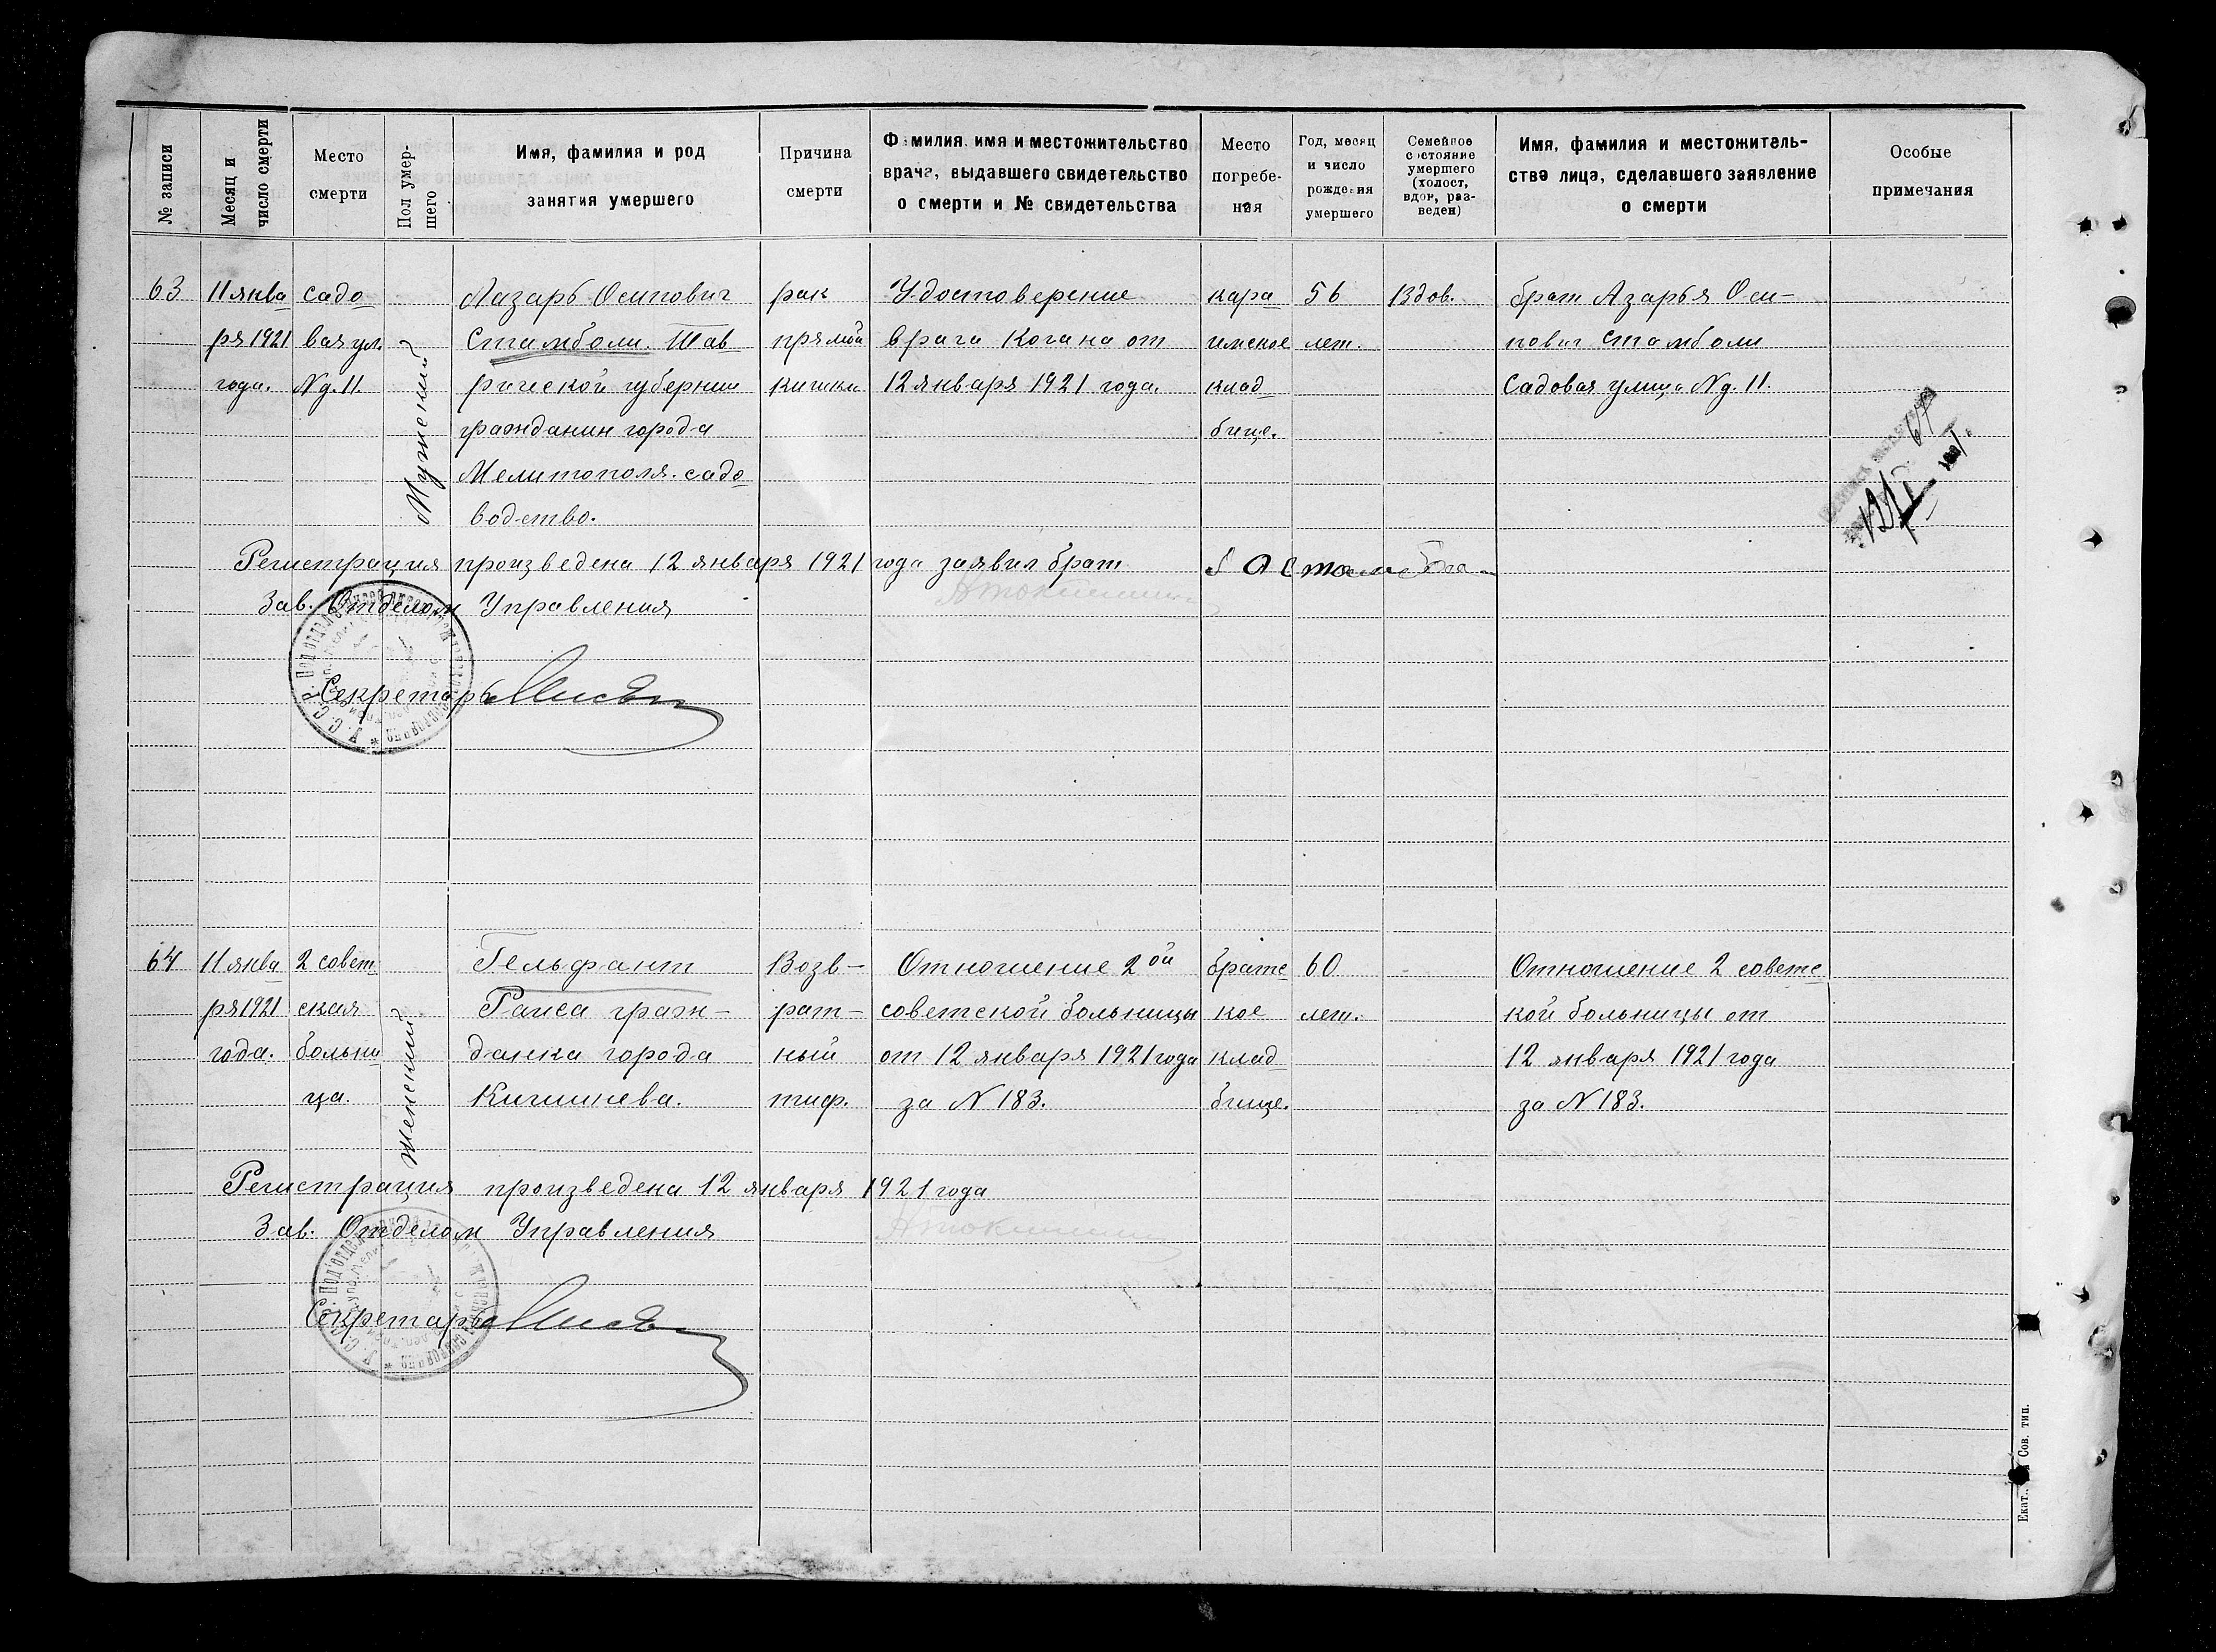 № записи
Месяц и
число смерти
Место
смерти
Пол умер-
шего
Имя, фамилия и род
занятия умершего
Причина
смерти
Фамилия, имя и местожительство
врача, выдавшего свидетельство
о смерти и № свидетельства
Место
погребе-
ния
Год, месяц
и число
рождения
умершего
Семейное
состояние
умершего
(холост,
вдов, раз-
веден)
Имя, фамилия и местожитель-
ство лица, сделавшего заявление
о смерти
Особые
примечания
63
11 янва
ря 1921
года.
садо
вая ул.
№ д. 11.
Мужеский
Лазарь Осипович
Стамболи. Тав
рической губернии
гражданин города
Мелитополя. садо
водство.
рак
прямой
кишки
Удостоверение
врача Когана от
12 января 1921 года.
кара
имское
клад
бище.
56
лет.
Вдов.
брат Азарья Оси-
пович Стамболи
Садовая улица № д. 11.
Регистрация произведена 12 января 1921 года заявил брат
Зав. Отделом Управления
Секретарь
64
11 янва
ря 1921
года.
2 совет
ская
больни
ца.
Женский
Гельфант
Раиса граж-
данка города
Кишинева.
Возв-
рат-
ный
тиф.
Отношение 2ой
советской больницы
от 12 января 1921 года
за № 183.
братс
кое
клад
бище.
60
лет.
Отношение 2 советс
кой больницы от
12 января 1921 года
за № 183.
Регистрация произведена 12 января 1921 года
Зав. Отделом Управления
Секретарь
Сов. тип.